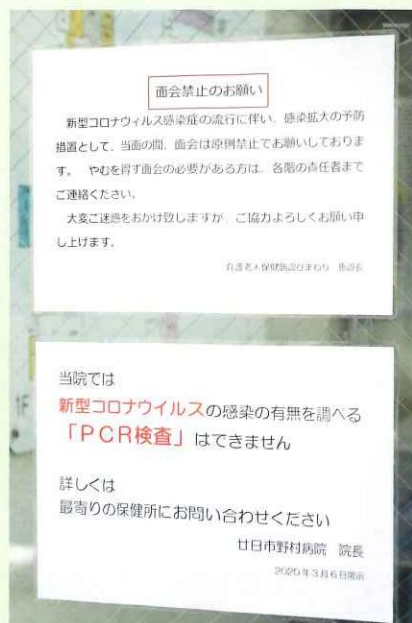 面会禁止のお願い
新型コロナウィルス感染症の流行に伴い、感染拡大の予防
措置として、当面の間、面会は原則禁止でお願いしておりま
す。 やむを得ず面会の必要がある方は、各階の責任者まで
ご連絡ください。
大変ご迷惑をおかけ致しますが、ご協力よろしくお願い申
し上げます。
介護老人保健施設ひまわり 施設長
当院では
新型コロナウイルスの感染の有無を調べる
「PCR検査」はできません
詳しくは
最寄りの保健所にお問い合わせください
廿日市野村病院 院長
2020年3月6日掲示